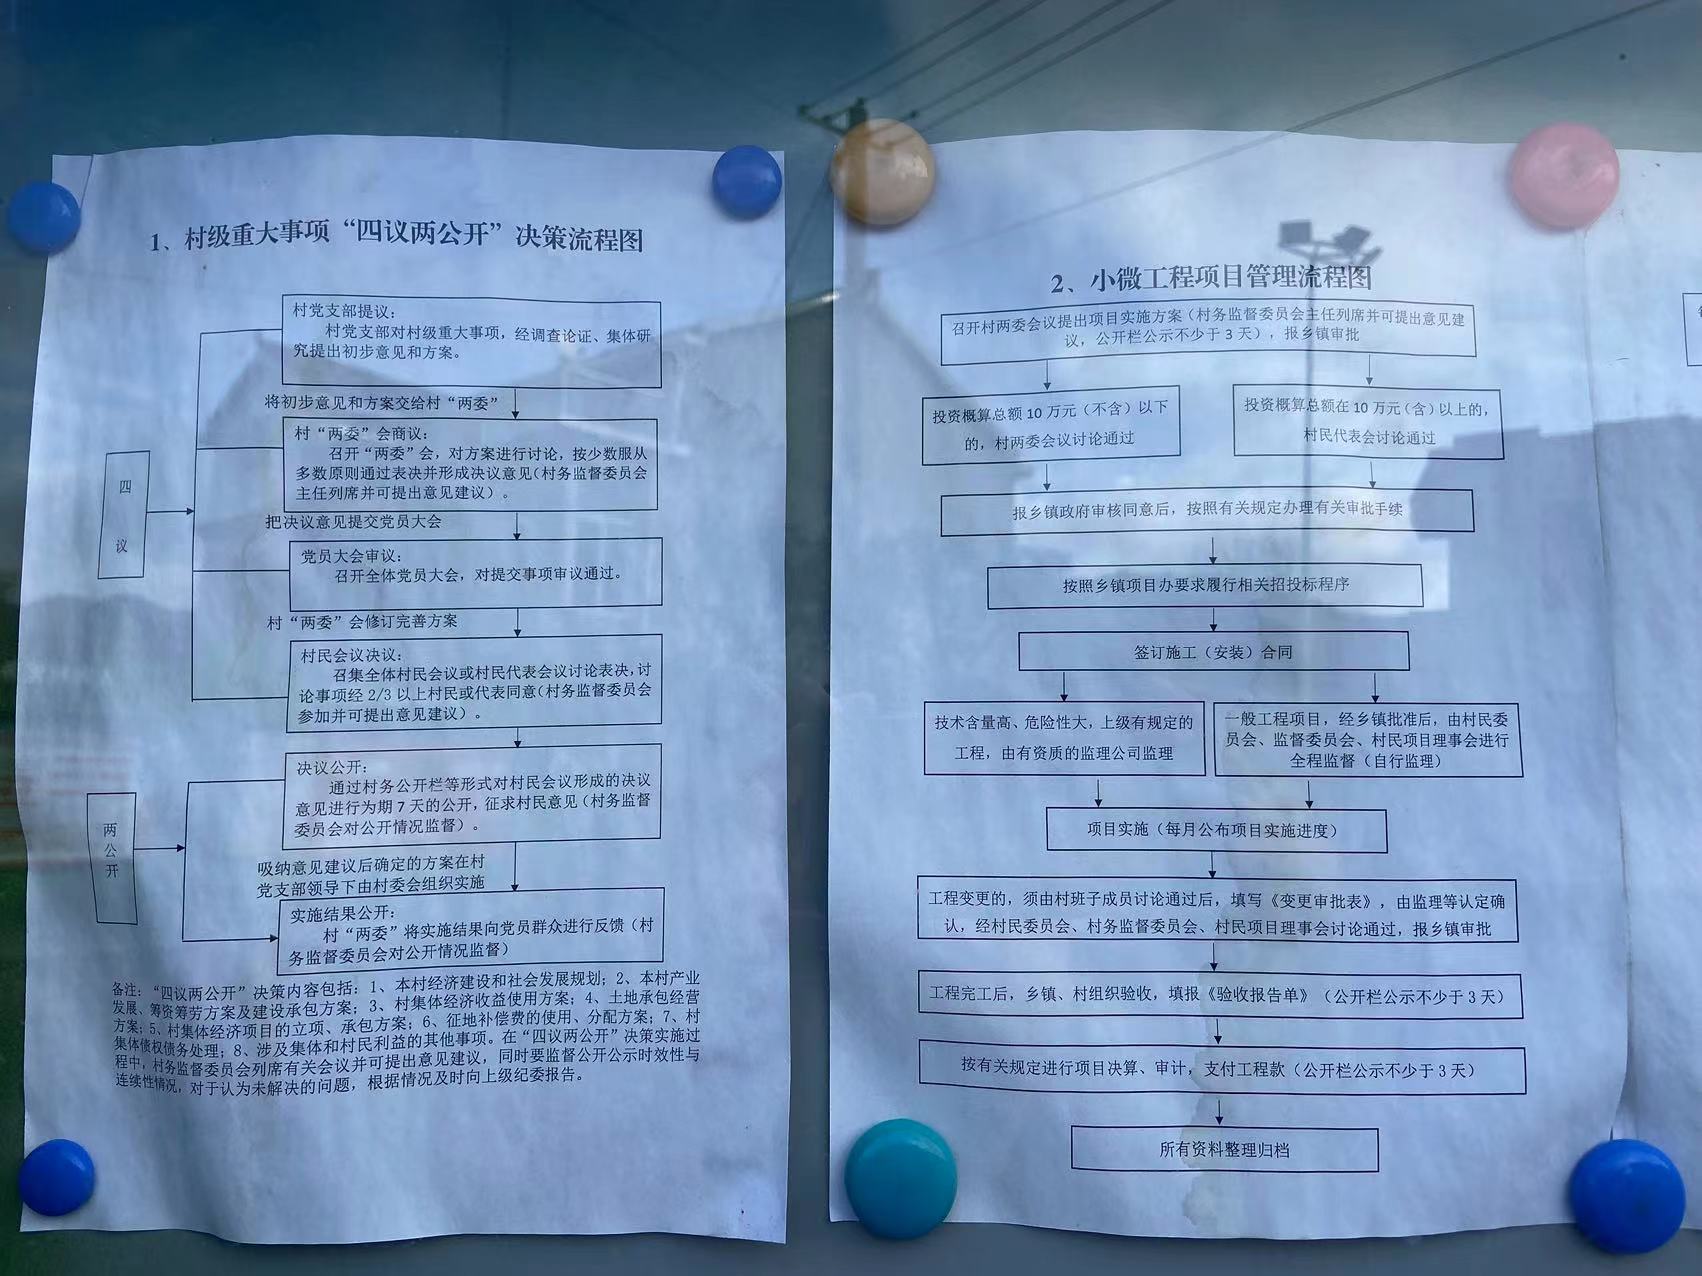 1、村级重大事项“四议两公开”决策流程图
村党支部提议：
村党支部对村级重大事项，经调查论证、集体研
究提出初步意见和方案。
将初步意见和方案交给村“两委”
村“两委”会商议：
召开“两委”会，对方案进行讨论，按少数服从
多数原则通过表决并形成决议意见（村务监督委员会
主任列席并可提出意见建议）。
把决议意见提交党员大会
党员大会审议：
召开全体党员大会，对提交事项审议通过。
村“两委”会修订完善方案
村民会议决议：
召集全体村民会议或村民代表会议讨论表决，讨
论事项经2/3以上村民或代表同意（村务监督委员会
参加并可提出意见建议）。
四
议
决议公开：
通过村务公开栏等形式对村民会议形成的决议
意见进行为期7天的公开，征求村民意见（村务监督
委员会对公开情况监督）。
吸纳意见建议后确定的方案在村
党支部领导下由村委会组织实施
实施结果公开：
村“两委”将实施结果向党员群众进行反馈（村
务监督委员会对公开情况监督）
两
公
开
备注：“四议两公开”决策内容包括：1、本村经济建设和社会发展规划；2、本村产业
发展、筹资筹劳方案及建设承包方案；3、村集体经济收益使用方案；4、土地承包经营
方案；5、村集体经济项目的立项、承包方案；6、征地补偿费的使用、分配方案；7、村
集体债权债务处理；8、涉及集体和村民利益的其他事项。在“四议两公开”决策实施过
程中，村务监督委员会列席有关会议并可提出意见建议，同时要监督公开公示时效性与
连续性情况，对于认为未解决的问题，根据情况及时向上级纪委报告。
2、小微工程项目管理流程图
召开村两委会议提出项目实施方案（村务监督委员会主任列席并可提出意见建
议，公开栏公示不少于3天），报乡镇审批
投资概算总额10万元（不含）以下
的，村两委会议讨论通过
投资概算总额在10万元（含）以上的，
村民代表会讨论通过
报乡镇政府审核同意后，按照有关规定办理有关审批手续
按照乡镇项目办要求履行相关招投标程序
签订施工（安装）合同
技术含量高、危险性大，上级有规定的
工程，由有资质的监理公司监理
一般工程项目，经乡镇批准后，由村民委
员会、监督委员会、村民项目理事会进行
全程监督（自行监理）
项目实施（每月公布项目实施进度）
工程变更的，须由村班子成员讨论通过后，填写《变更审批表》，由监理等认定确
认，经村民委员会、村务监督委员会、村民项目理事会讨论通过，报乡镇审批
工程完工后，乡镇、村组织验收，填报《验收报告单》（公开栏公示不少于3天）
按有关规定进行项目决算、审计，支付工程款（公开栏公示不少于3天）
所有资料整理归档